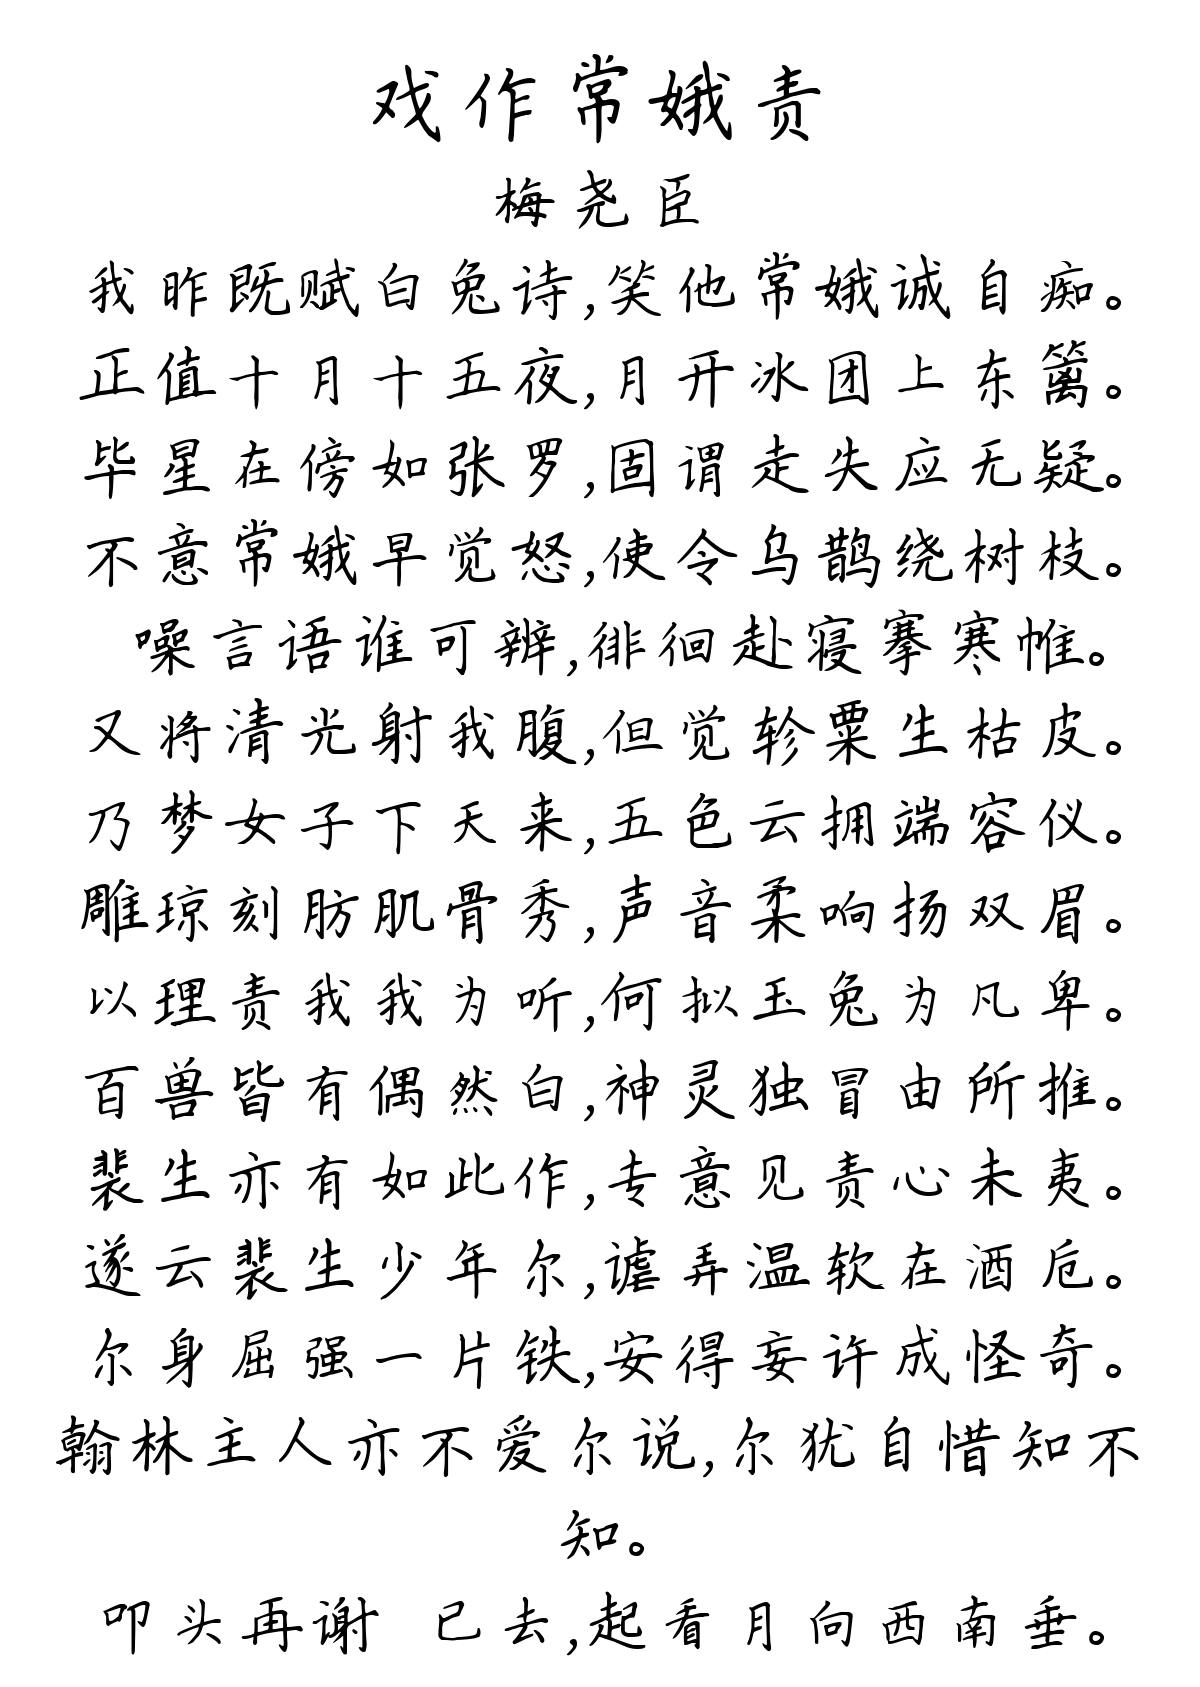 戏作常娥责
梅尧臣
我昨既赋白兔诗,笑他常娥诚自痴。
正值十月十五夜,月开冰团上东篱。
毕星在傍如张罗,固谓走失应无疑。
不意常娥早觉怒,使令乌鹊绕树枝。
噪言语谁可辨,徘徊赴寝搴寒帷。
又将清光射我腹,但觉轸粟生枯皮。
乃梦女子下天来,五色云拥端容仪。
雕琼刻肪肌骨秀,声音柔响扬双眉。
以理责我我为听,何拟玉兔为凡卑。
百兽皆有偶然白,神灵独冒由所推。
裴生亦有如此作,专意见责心未夷。
遂云裴生少年尔,谑弄温软在酒卮。
尔身屈强一片铁,安得妄许成怪奇。
翰林主人亦不爱尔说,尔犹自惜知不
知。
叩头再谢 已去,起看月向西南垂。